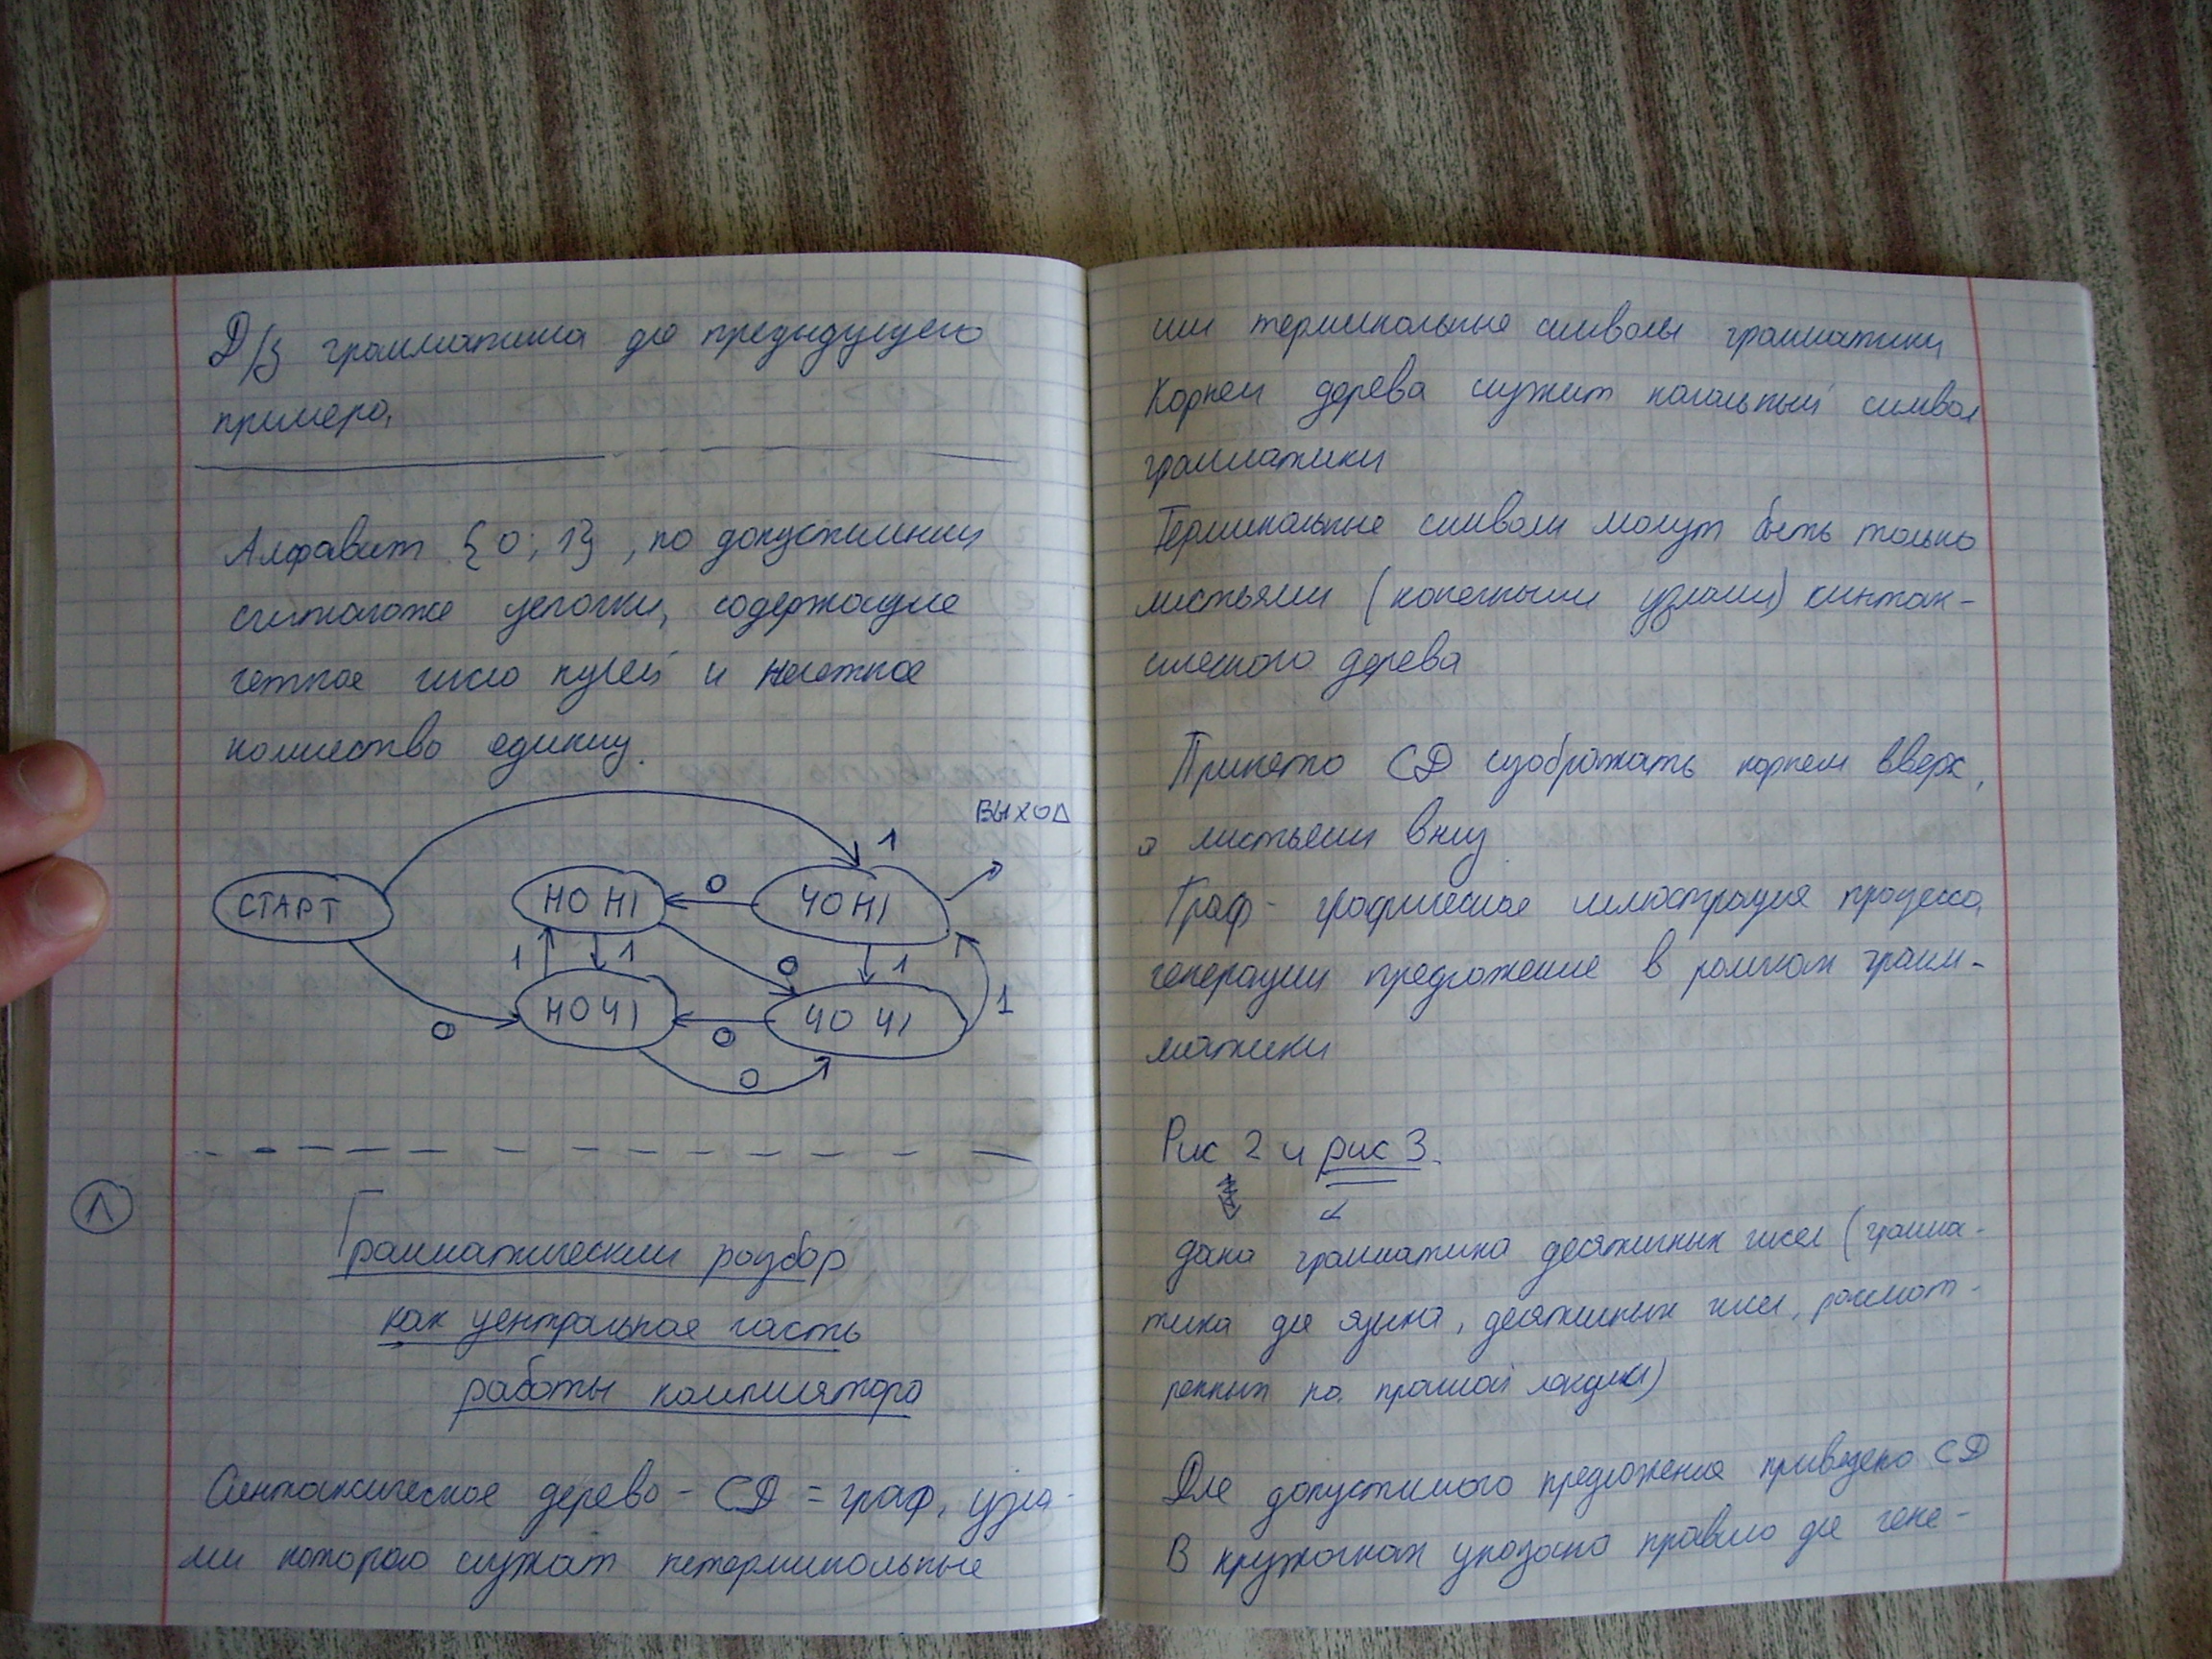 Д/З грамматика для предыдущего
примера.
Алфавит {0; 1}, но допустимыми
считаются цепочки, содержащие
четное число нулей и нечетное
количество единиц.
ВЫХОД
1
СТАРТ
Н0 Н1
0
Ч0Н1
1
1
0
1
1
Н0Ч1
0
Ч0 Ч1
0
0
Л
Грамматический разбор
как центральная часть
работы компилятора
Синтаксическое дерево - СД = граф, узла-
ми которого служат нетерминальные
или терминальные символы грамматики
Корнем дерева служит начальный символ
грамматики
Терминальные символы могут быть только
листьями (конечными узлами) синтак-
сического дерева
Принято СД изображать корнем вверх,
а листьями вниз
Граф - графическая иллюстрация процесса
генерации предложение в рамках грам-
матики
Рис 2 и рис 3.
дана грамматика десятичных чисел (грамма-
тика для языка, десятичных чисел, рассмот-
ренных на прошлой лекции)
Для допустимого предложения приведено СД
В кружочках указано правило для гене-